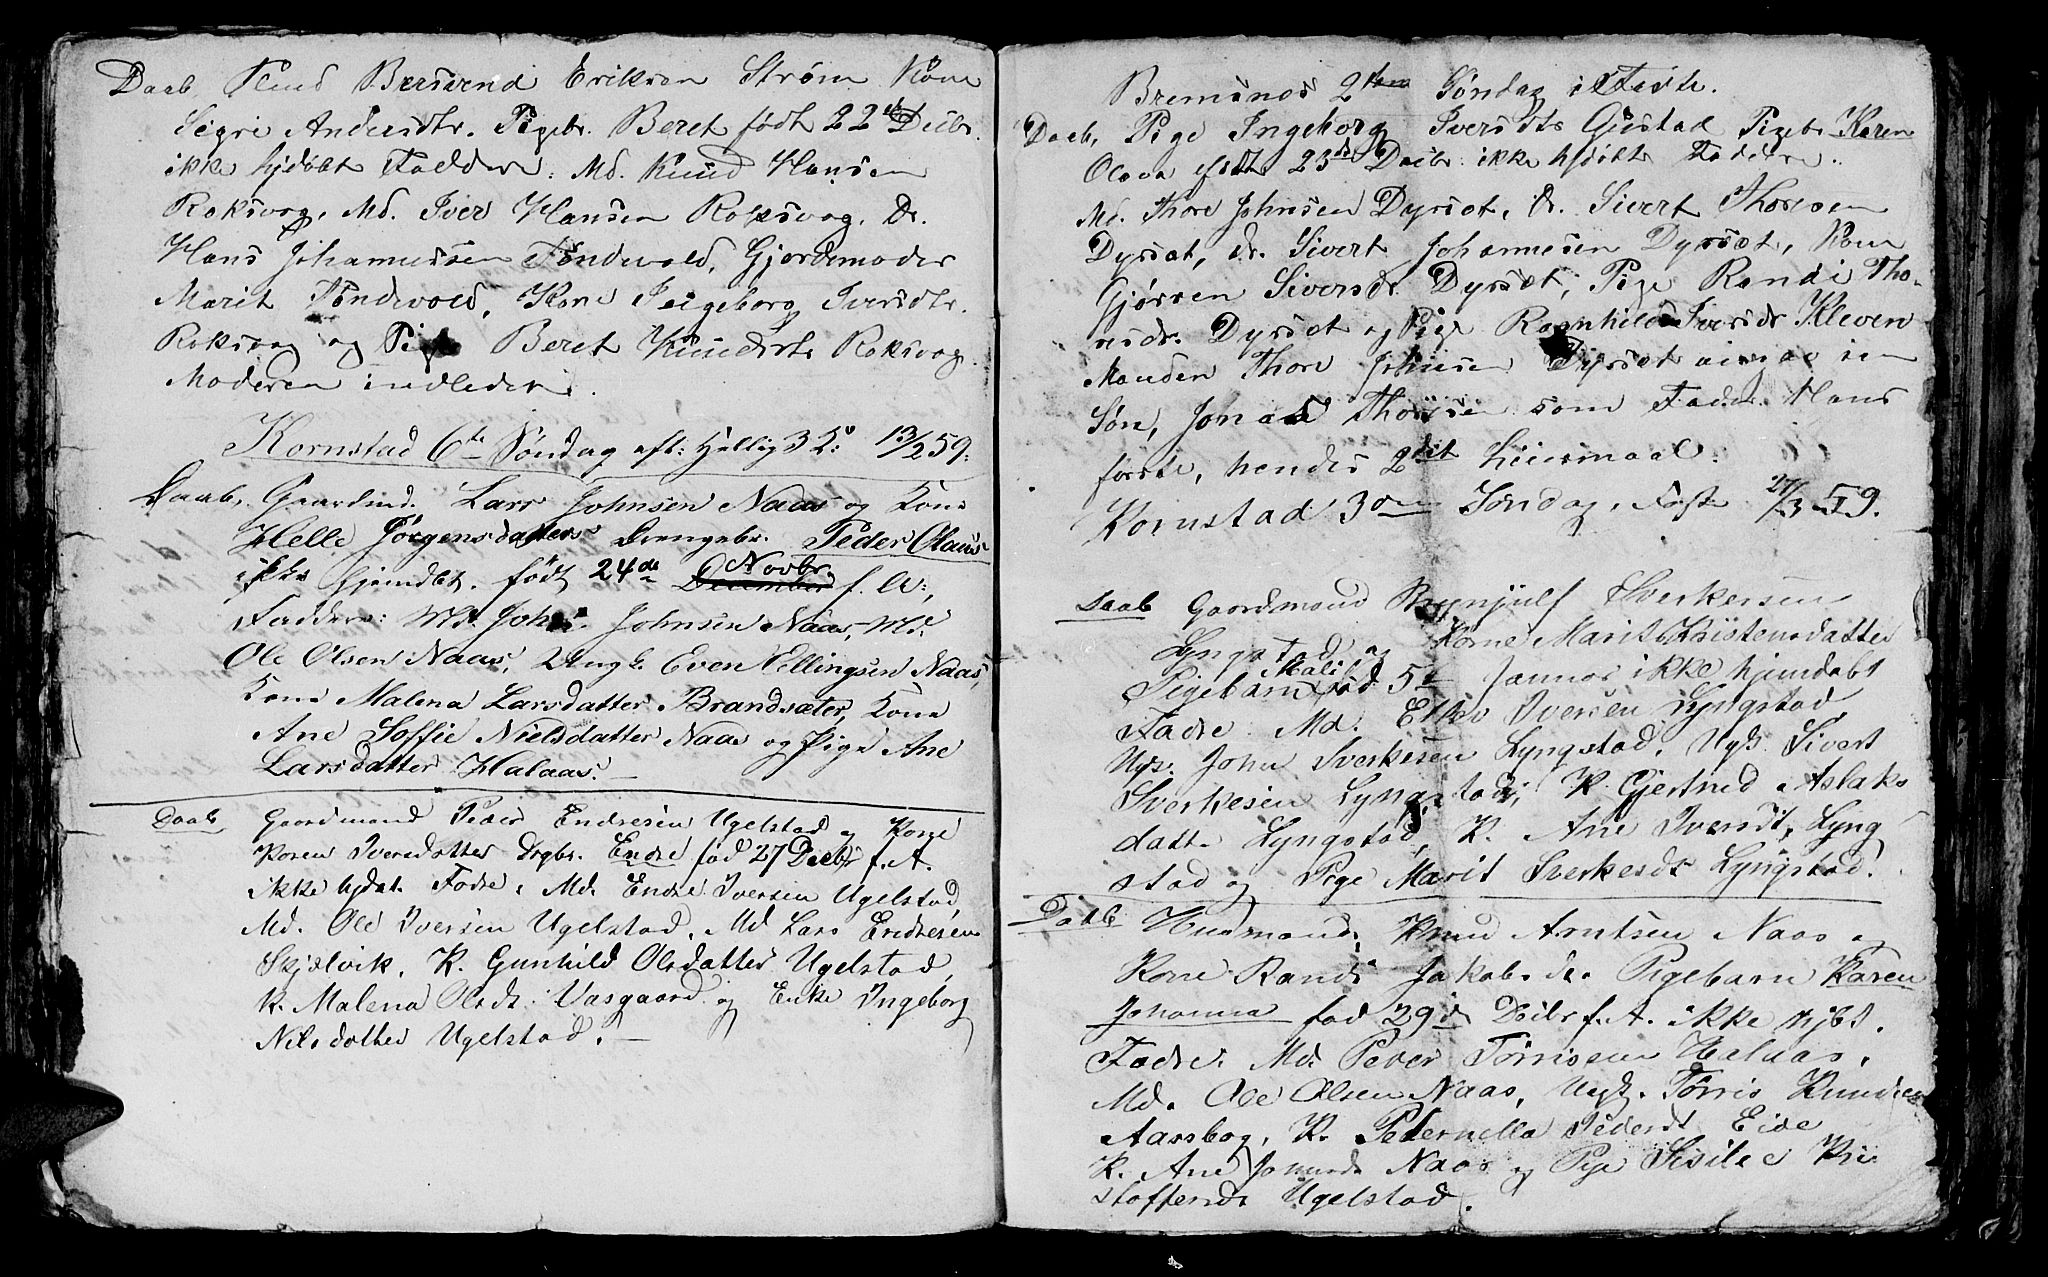 Daab, Knud Bersvend Eriksen Strøm Kone
Sigri Andersdtr. Pigebr. Beret født 22de Decbr.
ikke hjdøbt Faddere: Md. Knud Hansen
Roksvog, Md. Iver Hansen Roksvog, Dr.
Hans Johannessen Tøndevold, Gjordemoder
Marit Tøndevold, Kone Ingeborg Iversdtr.
Roksvog og Pige Beret Knudsdtr Roksvog.
Moderen indleder.
Kornstad 6te Søndag eft: Hellig 3 K: 13/2 59.
Daab, Gaardmd. Lars Johnsen Naas og Kone
Helle Jørgensdatters Drengebr. Peder Olaus
ikke hjemdbt. født 24de Novbr.
December f. A:,
Faddere: Md. John Johnsen Naas, Md.
Ole Olsen Naas, Ungk. Even Ellingsen Naas,
Kone Malena Larsdatter Brandsæter, Kone
Ane Soffie Nielsdatter Naas og Pige Ane
Larsdatter Halaas.
Daab Gaardmand Peder Endresen Ugelstad og Kone
Karen Iversdatter Drgbr. Endre fød 27 Decbr f. A.
ikke hjdbt. Fadre. Md. Endre Iversen Ugelstad,
Md. Ole Iversen Ugelstad, Md Lars Endresen
Skjølvik, K. Gunhild Olsdatter Ugelstad,
K. Malena Olsdt. Vasgaard og Enke Ingeborg
Nilsdatter Ugelstad.
Bremsnes 2den Søndag i Faste.
Daab, Pige Ingeborg Iversdtr Gustad Pigebr. Karen
Olava født 23de Decbr. ikke hjdøbt Faddere.
Md. Thore Johnsen Dyrsæt, Dr. Sivert Thoresen
Dyrsæt, dr. Sivert Johannesen Dyrsæt, Kone
Gjøren Siversdr. Dyrsæt, Pige Randi Tho-
resdr. Dyrsæt og Pige Ragnhild Iversdr Kleven
Manden Thore Johnsen Dyrsæt
Søn, Jonas Thoresen som Fader. Hans
første, hendes 2det Leiermaal.
Kornstad 3die Søndag i Faste 27/3 59.
Daab Gaardmand Brynjulf Sverkersen
Lyngstad og Kone Marit Kristensdatter
Malid
Pigebarn fød 5te Januar ikke hjemdøbt
Fadre. Md. Iversen Lyngstad
Ungk. John Sverkesen Lyngstad, Ungk. Sivert
Sverkesen Lyngstad, K. Gjertrud Aslaks
datter Lyngstad, K. Ane Iversdt. Lyng
stad og Pige Marit Sverkesdt Lyngstad.
Daab Husmand Knud Arntsen Naas og
Kone Randi Jakobsdr. Pigebarn Karen
Johanna fød 29de Decbr f. A. ikke hjbt.
Fadre. Md. Peder Tørrisen Halaas,
Md. Ole Olsen Naas, Ungk. Tørris Knudsen
Aarsbog, K. Pedernella Pedersdt Eide
K. Ane Naas og Pige Sisilie Kri
stoffersdt Ugelstad.